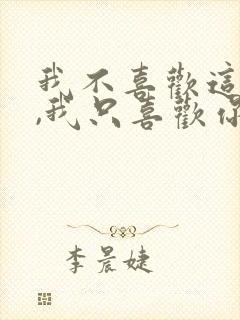 我不喜歡這
,我只喜歡你
李晨婕